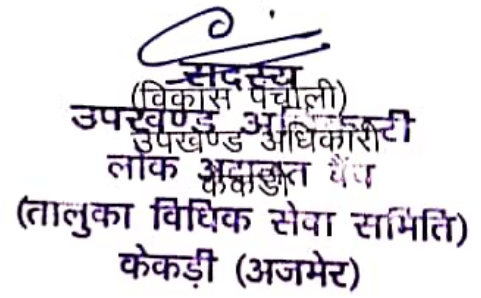 सदस्य
(विकास पंचोली)
उपखण्ड अधिकारी
उपखण्ड अधिकारी
लोक अदालत बैंच
केकडी
(तालुका विधिक सेवा समिति)
केकड़ी (अजमेर)